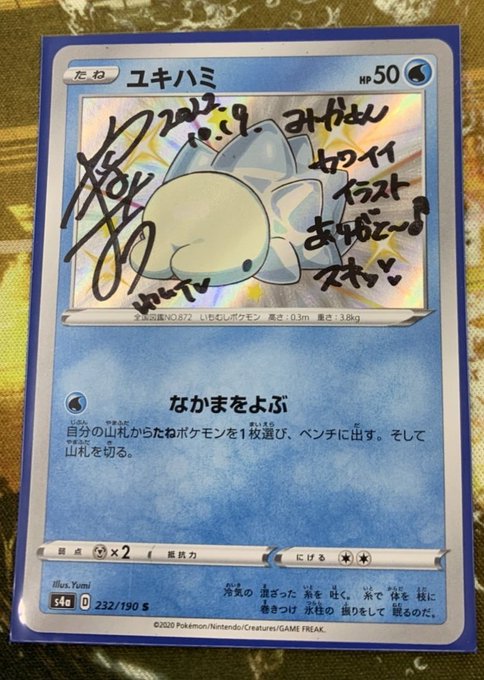 たね ユキハミ HP50
2022.
10.19.
カワイイ
イラスト
ありがと〜♪
スキッ♡
全国図鑑NO.872 いもむしポケモン 高さ:0.3m 重さ:3.8kg
なかまをよぶ
自分の山札からたねポケモンを1枚選び、ベンチに出す。そして
山札を切る。
弱点 ×2 抵抗力 にげる
Illus.Yumi
冷気の 混ざった 糸を 吐く。糸で 体を 枝に
巻きつけ 氷柱の 振りをして 眠るのだ。
s4a D 232/190 S
©2020 Pokémon/Nintendo/Creatures/GAME FREAK.